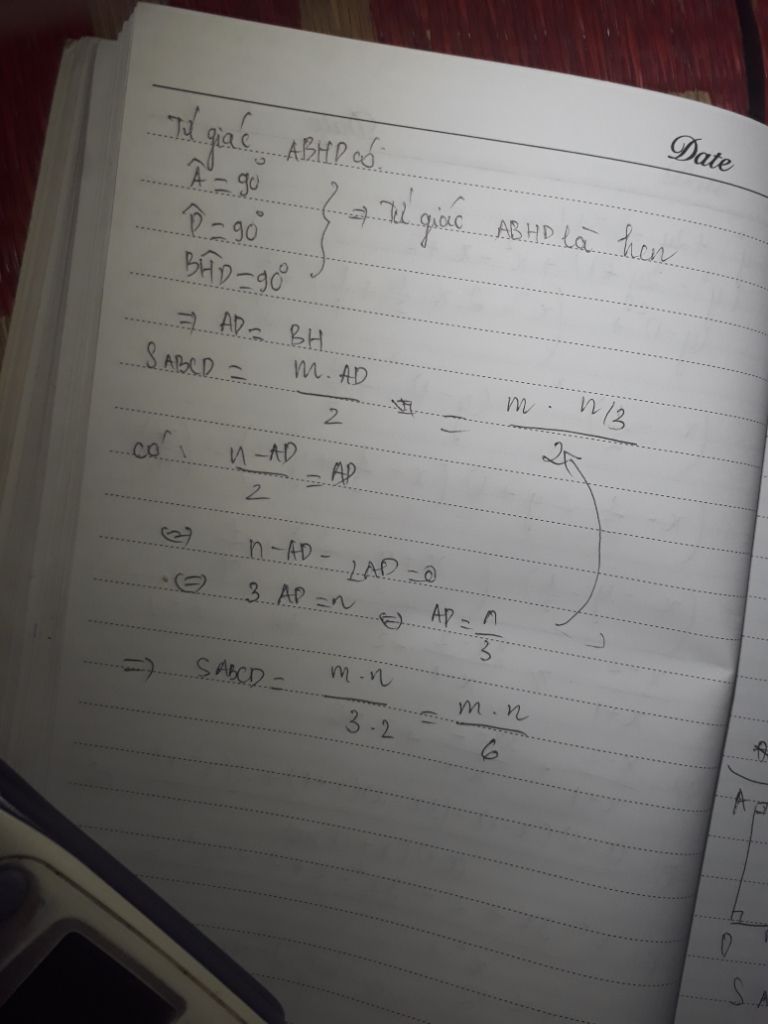 Date
Tứ giác ABHD có:
Â = 90°
D̂ = 90°
BĤD = 90°
} => Tứ giác ABHD là hcn
=> AD = BH
SABCD = m . AD / 2 = m . n/3 / 2
có: n - AD / 2 = AD
<=> n - AD - 2AD = 0
<=> 3 . AD = n <=> AD = n / 3
=> SABCD = m . n / 3 . 2 = m . n / 6
A
D
S